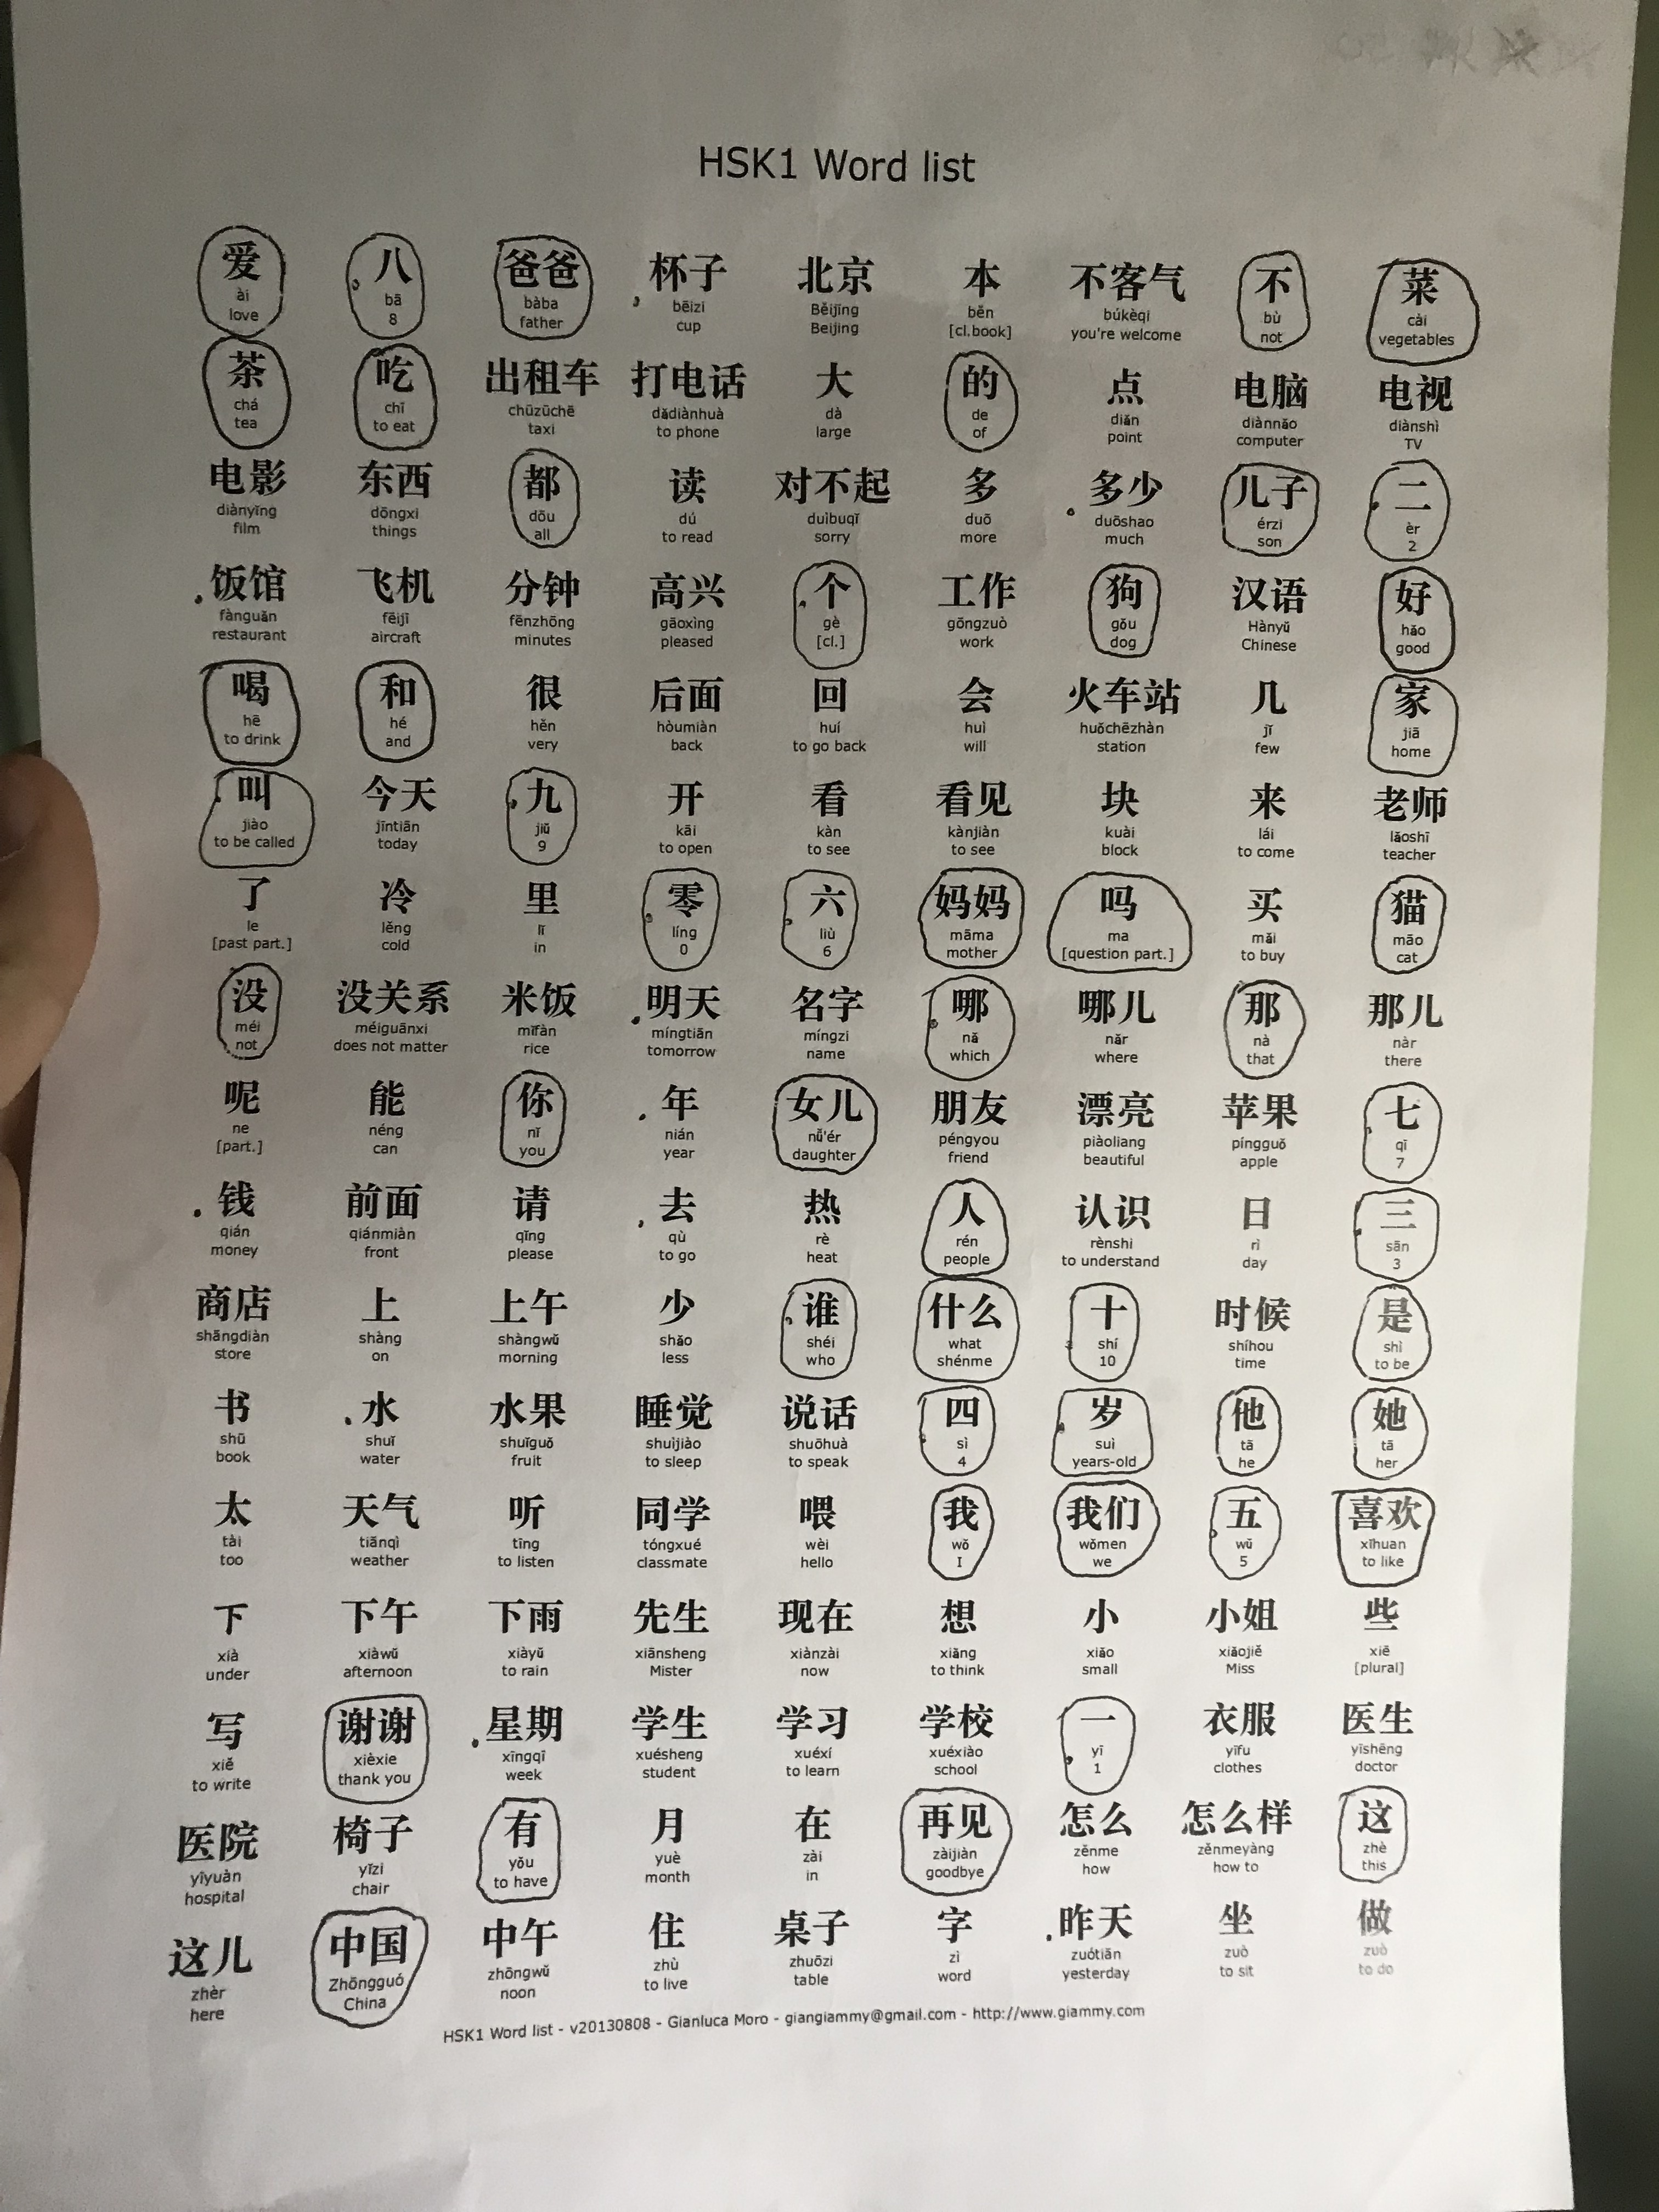 HSK1 Word list
爱 八 爸爸 杯子 北京 本 不客气 不 菜
ài bā bàba bēizi Běijīng běn búkèqi bù cài
love 8 father cup Beijing [cl.book] you're welcome not vegetables
茶 吃 出租车 打电话 大 的 点 电脑 电视
chá chī chūzūchē dǎdiànhuà dà de diǎn diànnǎo diànshì
tea to eat taxi to phone large of point computer TV
电影 东西 都 读 对不起 多 多少 儿子 二
diànyǐng dōngxi dōu dú duìbuqǐ duō duōshao érzi èr
film things all to read sorry more much son 2
饭馆 飞机 分钟 高兴 个 工作 狗 汉语 好
fànguǎn fēijī fēnzhōng gāoxìng gè gōngzuò gǒu Hànyǔ hǎo
restaurant aircraft minutes pleased [cl.] work dog Chinese good
喝 和 很 后面 回 会 火车站 几 家
hē hé hěn hòumiàn huí huì huǒchēzhàn jǐ jiā
to drink and very back to go back will station few home
叫 今天 九 开 看 看见 块 来 老师
jiào jīntiān jiǔ kāi kàn kànjiàn kuài lái lǎoshī
to be called today 9 to open to see to see block to come teacher
了 冷 里 零 六 妈妈 吗 买 猫
le lěng lǐ líng liù māma ma mǎi māo
[past part.] cold in 0 6 mother [question part.] to buy cat
没 没关系 米饭 明天 名字 哪 哪儿 那 那儿
méi méiguānxi mǐfàn míngtiān míngzi nǎ nǎr nà nàr
not does not matter rice tomorrow name which where that there
呢 能 你 年 女儿 朋友 漂亮 苹果 七
ne néng nǐ nián nǚ'ér péngyou piàoliang píngguǒ qī
[part.] can you year daughter friend beautiful apple 7
钱 前面 请 去 热 人 认识 日 三
qián qiánmiàn qǐng qù rè rén rènshi rì sān
money front please to go heat people to understand day 3
商店 上 上午 少 谁 什么 十 时候 是
shāngdiàn shàng shàngwǔ shǎo shéi what shí shíhou shì
store on morning less who shénme 10 time to be
书 水 水果 睡觉 说话 四 岁 他 她
shū shuǐ shuǐguǒ shuìjiào shuōhuà sì suì tā tā
book water fruit to sleep to speak 4 years-old he her
太 天气 听 同学 喂 我 我们 五 喜欢
tài tiānqì tīng tóngxué wèi wǒ wǒmen wǔ xǐhuan
too weather to listen classmate hello I we 5 to like
下 下午 下雨 先生 现在 想 小 小姐 些
xià xiàwǔ xiàyǔ xiānsheng xiànzài xiǎng xiǎo xiǎojiě xiē
under afternoon to rain Mister now to think small Miss [plural]
写 谢谢 星期 学生 学习 学校 一 衣服 医生
xiě xièxie xīngqī xuésheng xuéxí xuéxiào yī yīfu yīshēng
to write thank you week student to learn school 1 clothes doctor
医院 椅子 有 月 在 再见 怎么 怎么样 这
yīyuàn yǐzi yǒu yuè zài zàijiàn zěnme zěnmeyàng zhè
hospital chair to have month in goodbye how how to this
这儿 中国 中午 住 桌子 字 昨天 坐 做
zhèr Zhōngguó zhōngwǔ zhù zhuōzi zì zuótiān zuò zuò
here China noon to live table word yesterday to sit to do
HSK1 Word list - v20130808 - Gianluca Moro - giangiammy@gmail.com - http://www.giammy.com